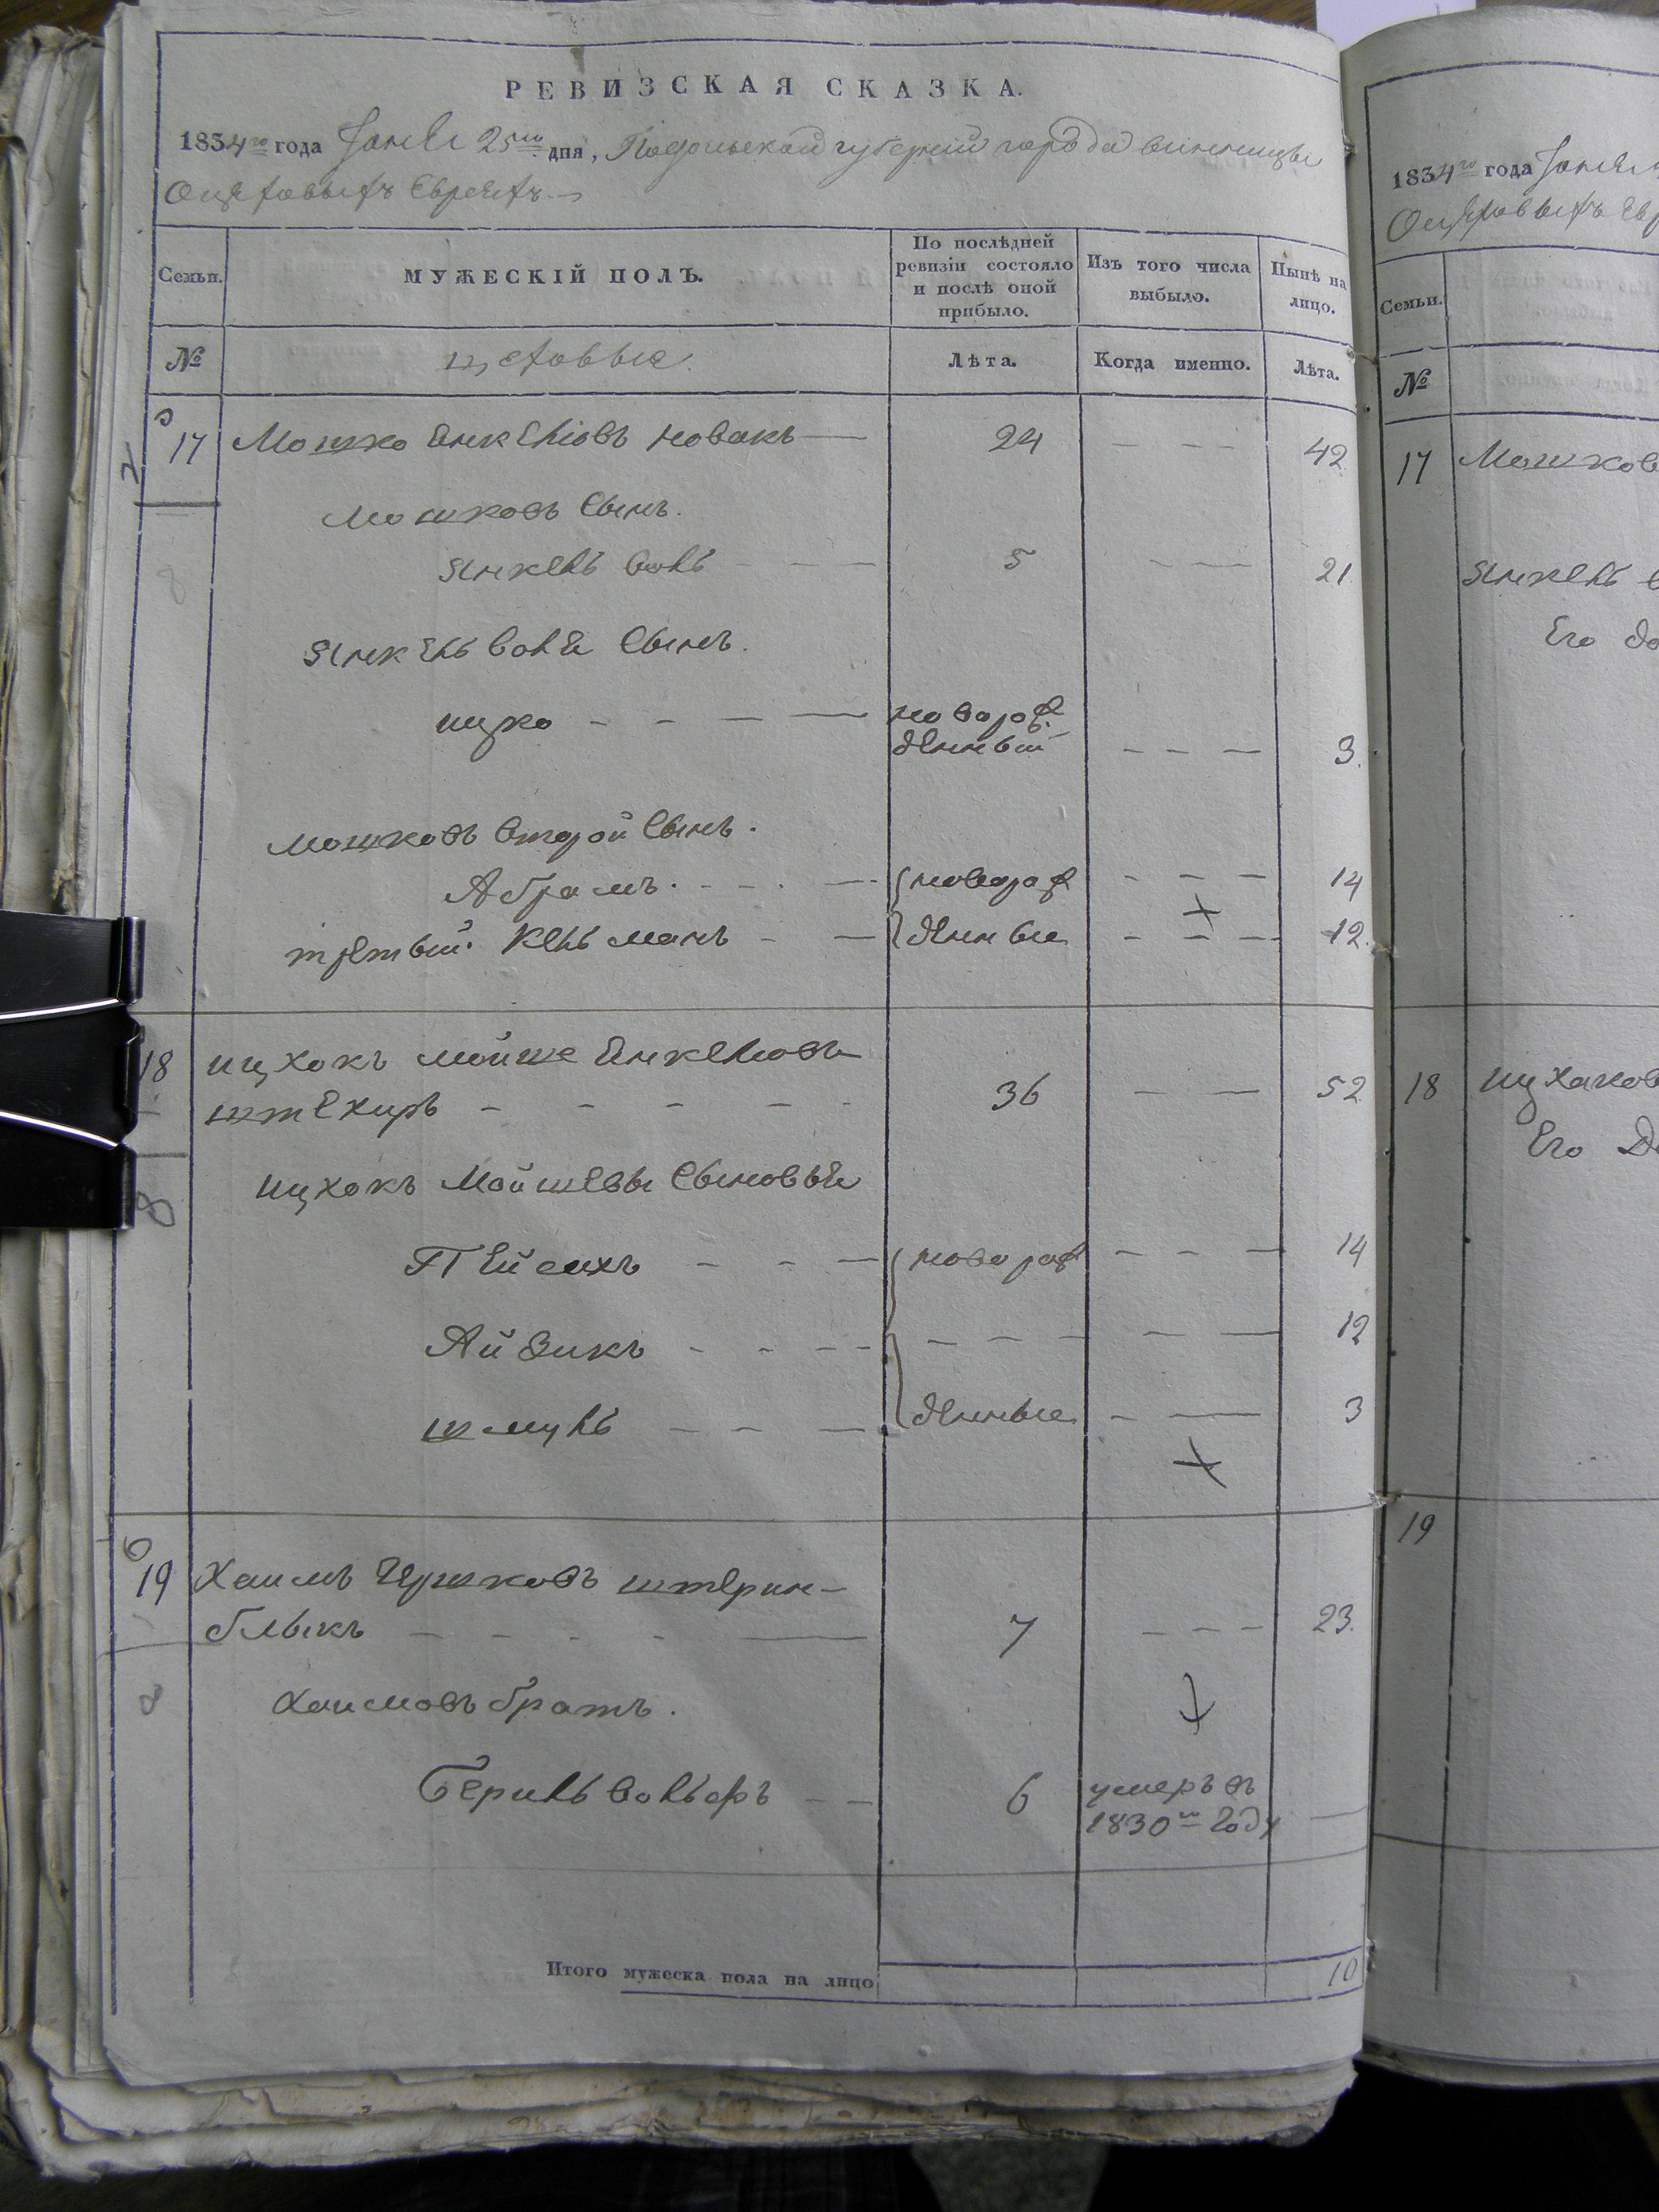 РЕВИЗСКАЯ СКАЗКА.
1834го года 25го дня, Подольской губерніи города винницы
Евреяхъ
Семьи.
МУЖЕСКІЙ ПОЛЪ.
По послѣдней ревизіи состояло и послѣ оной прибыло.
Изъ того числа выбыло.
Нынѣ на лицо.
№
цеховые.
Лѣта.
Когда именно.
Лѣта.
17 Мошко Янкеліовъ новакъ — 24 - - - 42
Мошковъ Сынъ.
Янкель волъ - - - 5 - - - 21.
Янкель воля Сынъ.
ицко - - - — новорож-
денный - - - 3.
мошковъ второй Сынъ.
Абрамъ. - - - новорож - - - 14
третьий. Кельманъ - — денные - - - 12.
18 ицхокъ мойше Янкеліовъ
штехиръ - - - - - 36 - - 52
ицхокъ Мойшевы Сыновья
Пейсихъ - - — новорож - - - 14
Айзикъ - - - - - - - - - 12
шмуль - - — денные - — 3
19 Хаимъ Гершковъ штерин-
блыкъ - - - - — 7 - - - 23.
Хаимовъ братъ.
Бериль вольфъ - - 6 умеръ въ
1830м году —
Итого мужеска пола на лицо 10
1834го года
Семьи.
№
17 Мошков
Янкель
Его
18 ицхаков
Его
19